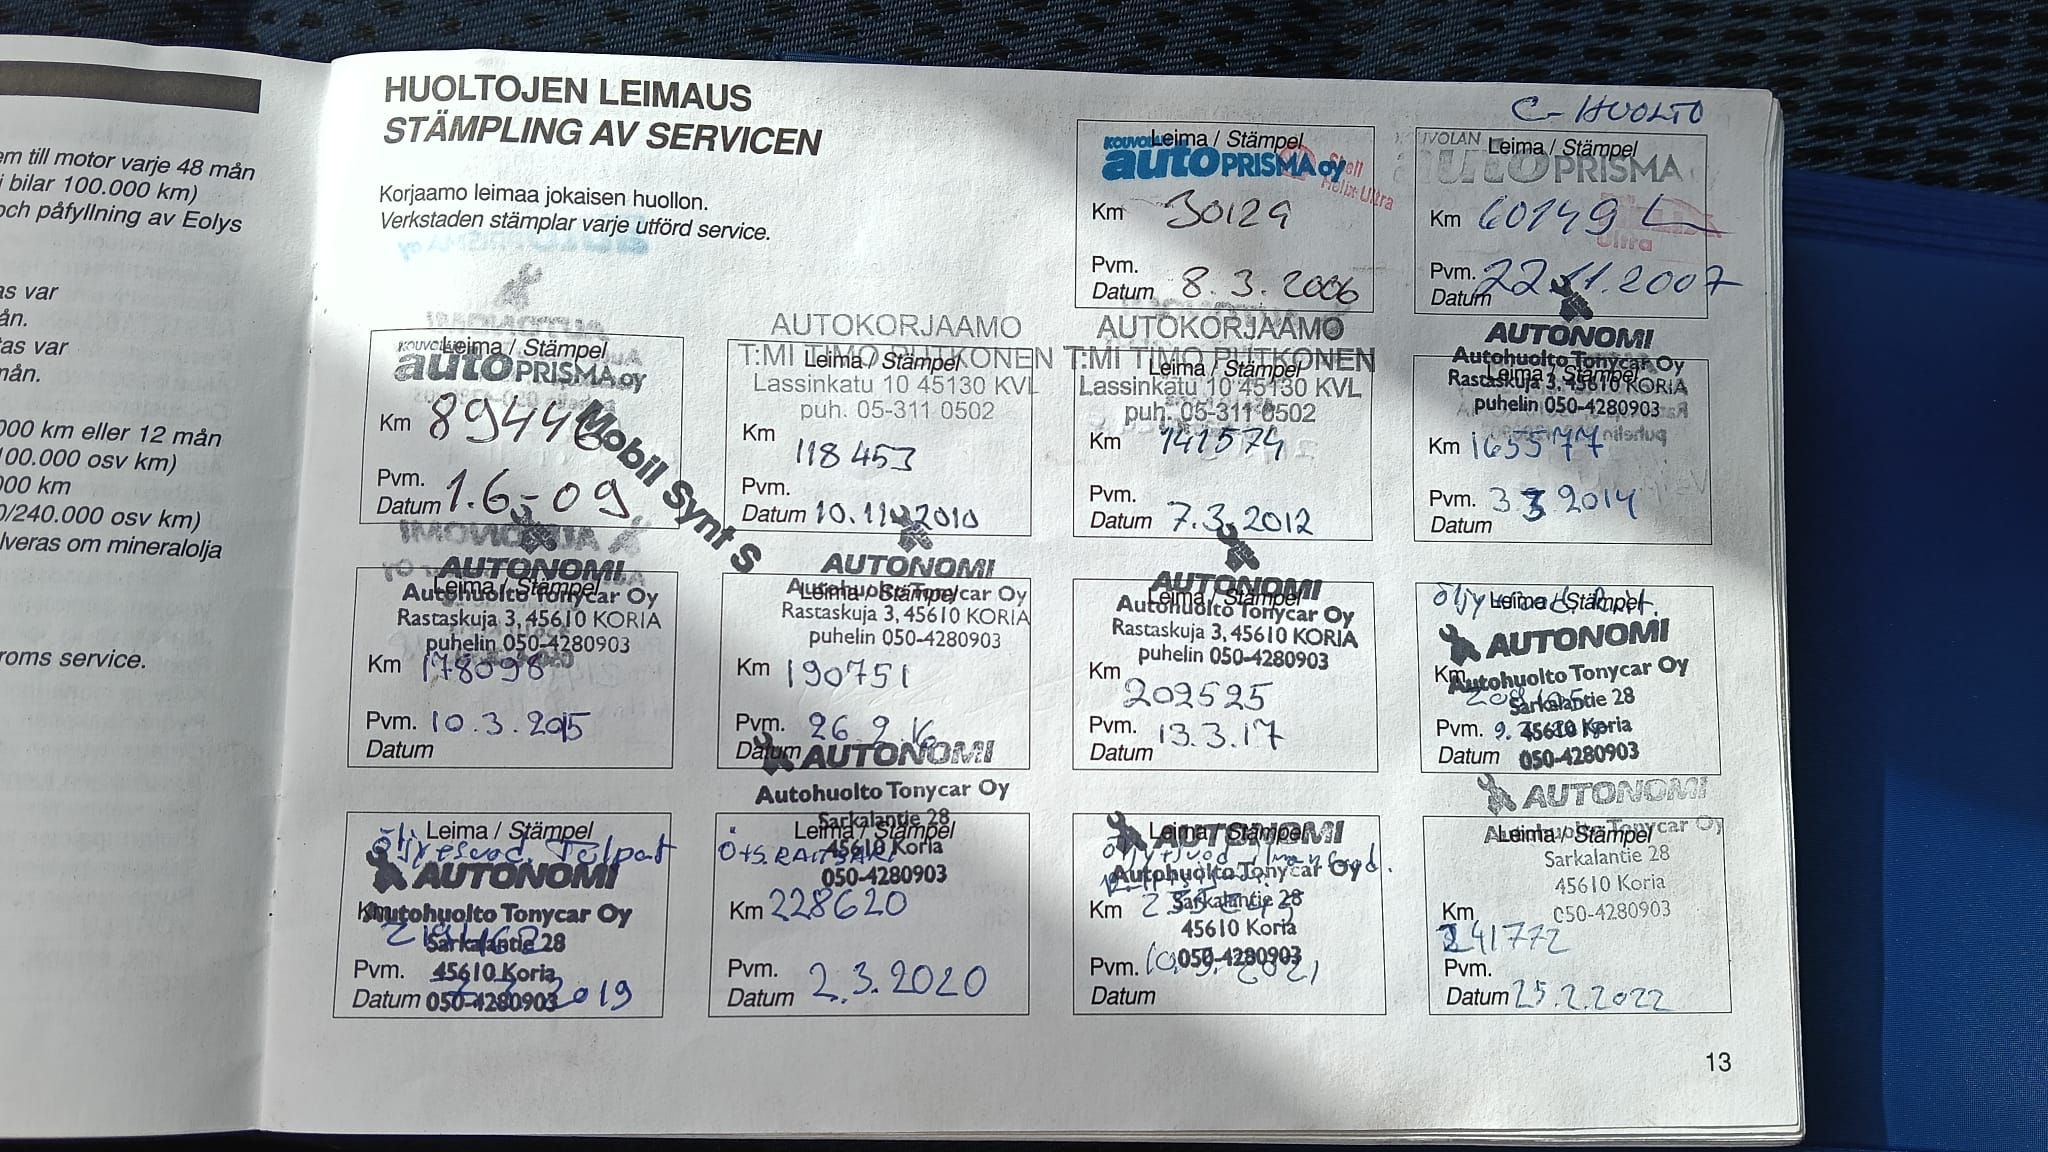 em till motor varje 48 mån
i bilar 100.000 km)
och påfyllning av Eolys
as var
ån.
tas var
mån.
000 km eller 12 mån
100.000 osv km)
000 km
0/240.000 osv km)
lveras om mineralolja
roms service.
HUOLTOJEN LEIMAUS
STÄMPLING AV SERVICEN
Korjaamo leimaa jokaisen huollon.
Verkstaden stämplar varje utförd service.
Leima / Stämpel
KOUVOLAN
autoPRISMA oy
Shell
Helix Ultra
Km 30129
Pvm.
Datum 8.3.2006
C-HUOLTO
Leima / Stämpel
KOUVOLAN
autoPRISMA oy
Ultra
Km 60149
Pvm.
Datum 22.11.2007
Leima / Stämpel
autoPRISMA oy
Km 89446
Pvm.
Datum 1.6-09
Mobil Synt S
AUTOKORJAAMO
T:MI TIMO PUTKONEN
Leima / Stämpel
Lassinkatu 10 45130 KVL
puh. 05-311 0502
Km 118453
Pvm.
Datum 10.11.2010
AUTOKORJAAMO
T:MI TIMO PUTKONEN
Leima / Stämpel
Lassinkatu 10 45130 KVL
puh. 05-311 0502
Km 141574
Pvm.
Datum 7.3.2012
AUTONOMI
Autohuolto Tonycar Oy
Leima / Stämpel
Rastaskuja 3, 45610 KORIA
puhelin 050-4280903
Km 165577
Pvm. 3.3.2014
Datum
AUTONOMI
Leima / Stämpel
Autohuolto Tonycar Oy
Rastaskuja 3, 45610 KORIA
puhelin 050-4280903
Km 178098
Pvm. 10.3.2015
Datum
AUTONOMI
Autohuolto Tonycar Oy
Leima / Stämpel
Rastaskuja 3, 45610 KORIA
puhelin 050-4280903
Km 190751
Pvm. 26.2.16
Datum
AUTONOMI
Leima / Stämpel
Autohuolto Tonycar Oy
Rastaskuja 3, 45610 KORIA
puhelin 050-4280903
Km 202525
Pvm. 13.3.17
Datum
Leima / Stämpel
AUTONOMI
Autohuolto Tonycar Oy
Km
Sarkalantie 28
Pvm. 45610 Koria
Datum 050-4280903
Leima / Stämpel
Öljyt suod.
AUTONOMI
Km
Autohuolto Tonycar Oy
Sarkalantie 28
Pvm. 45610 Koria
Datum 050-4280903 2019
AUTONOMI
Autohuolto Tonycar Oy
Sarkalantie 28
Leima / Stämpel
45610 Koria
050-4280903
Km 228620
Pvm.
Datum 2.3.2020
AUTONOMI
Leima / Stämpel
Autohuolto Tonycar Oy
Sarkalantie 28
Km
45610 Koria
Pvm. 050-4280903 2021
Datum
AUTONOMI
Autohuolto Tonycar Oy
Leima / Stämpel
Sarkalantie 28
45610 Koria
050-4280903
Km
241772
Pvm.
Datum 25.2.2022
13